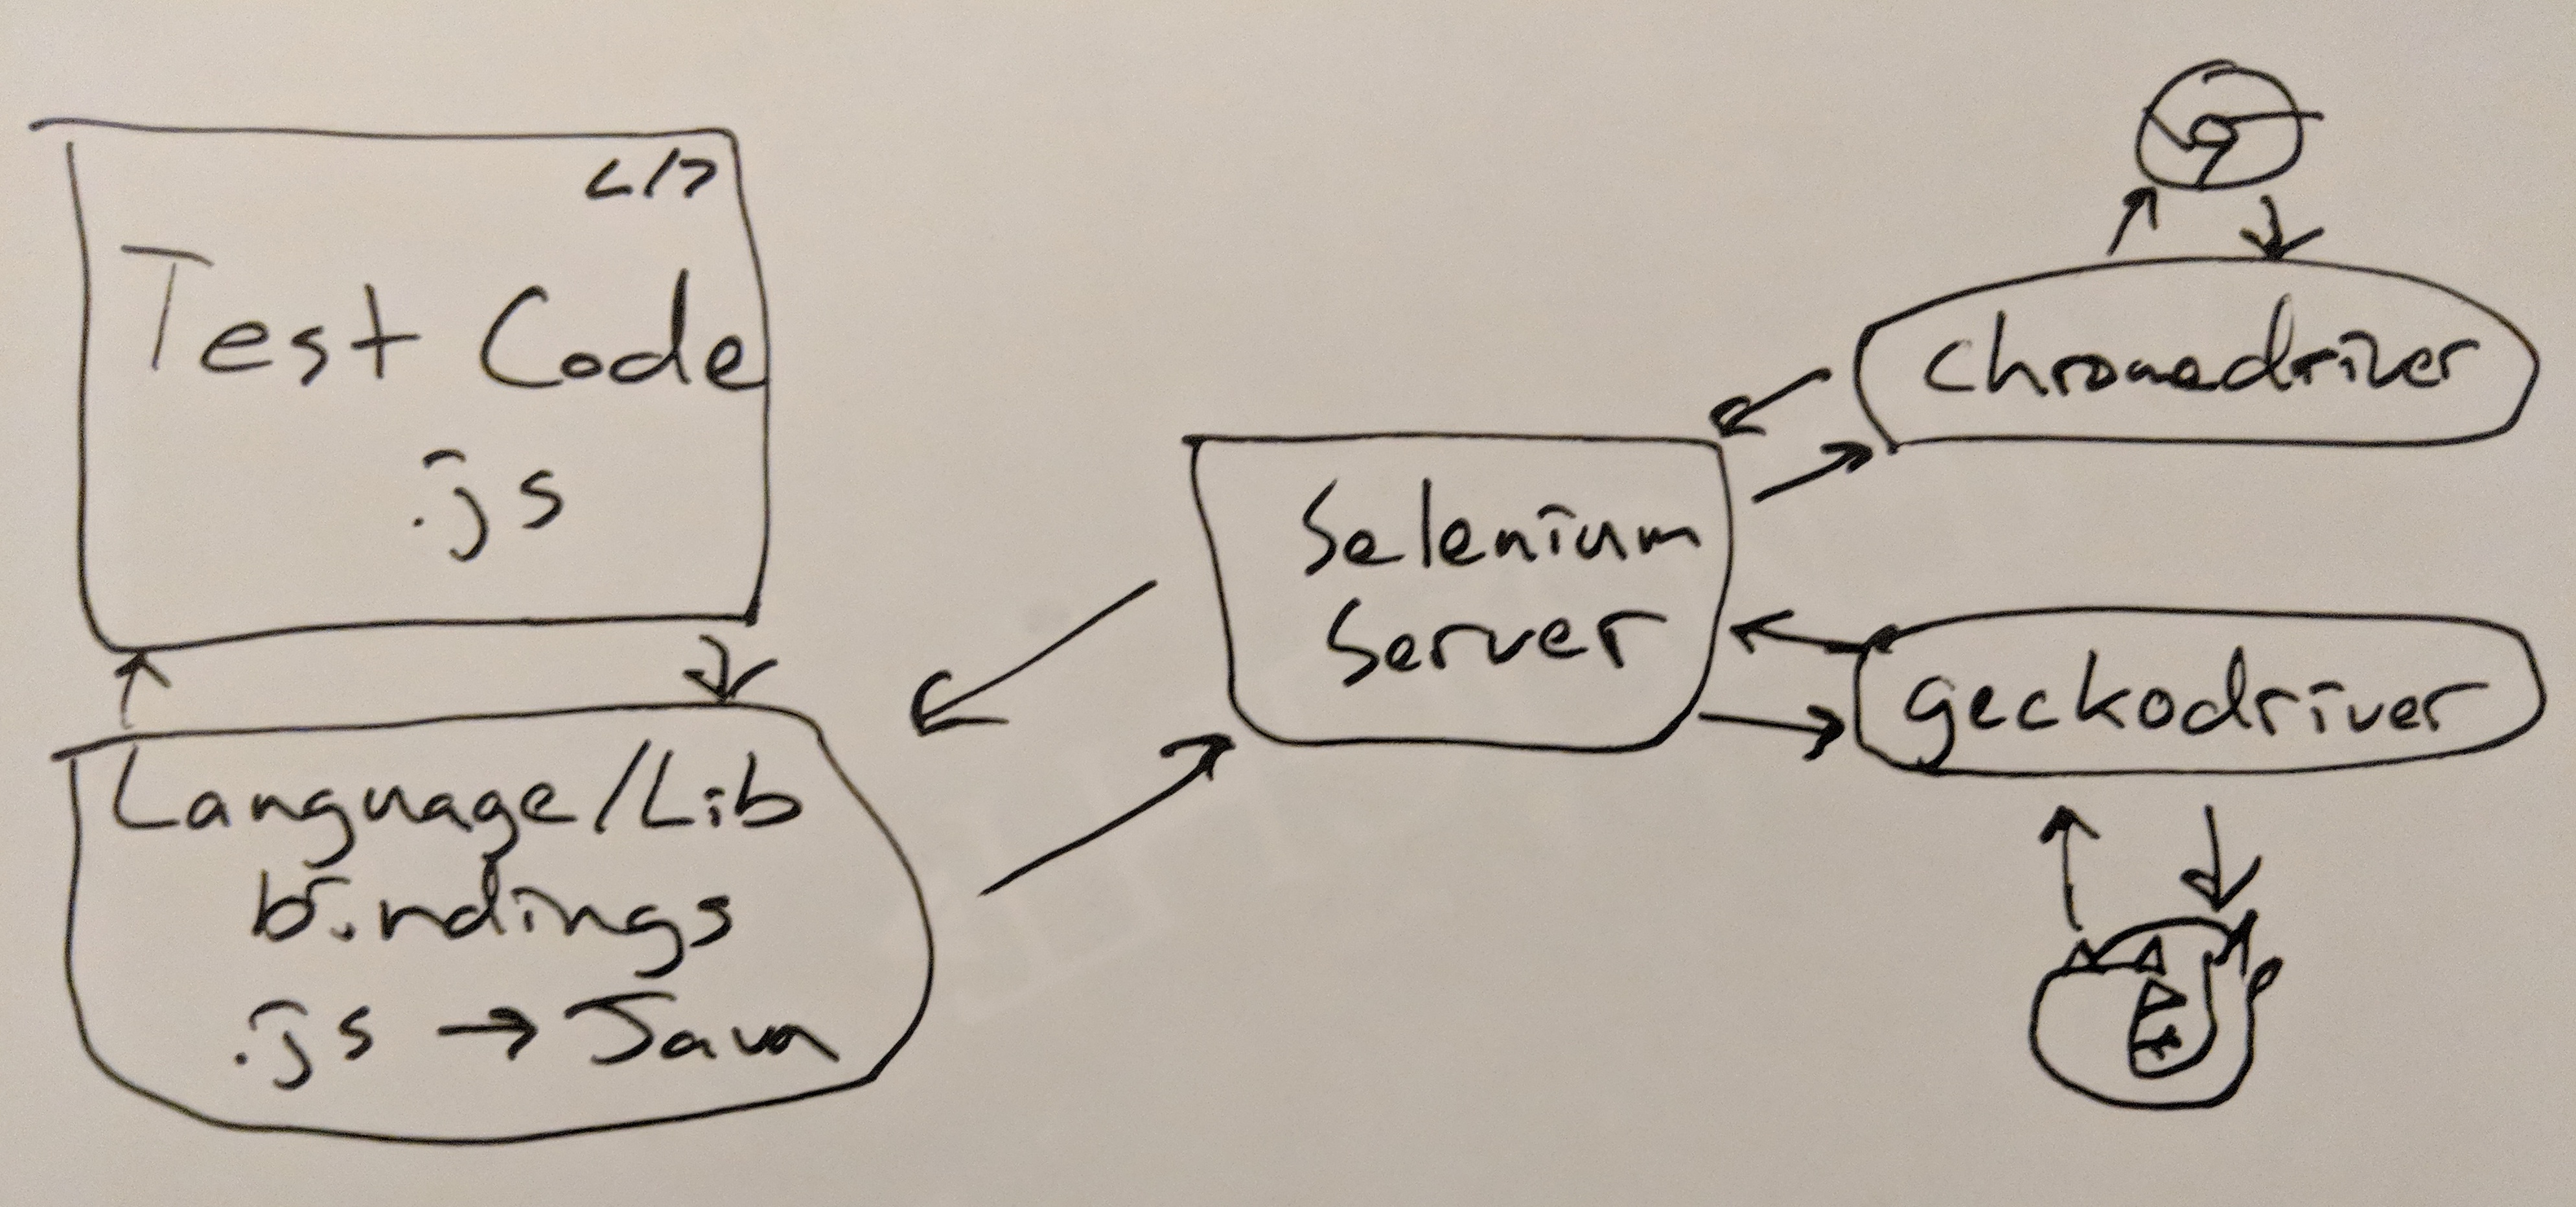 </>
Test Code
.js
Language/Lib
bindings
.js → Java
Selenium
Server
chromedriver
geckodriver